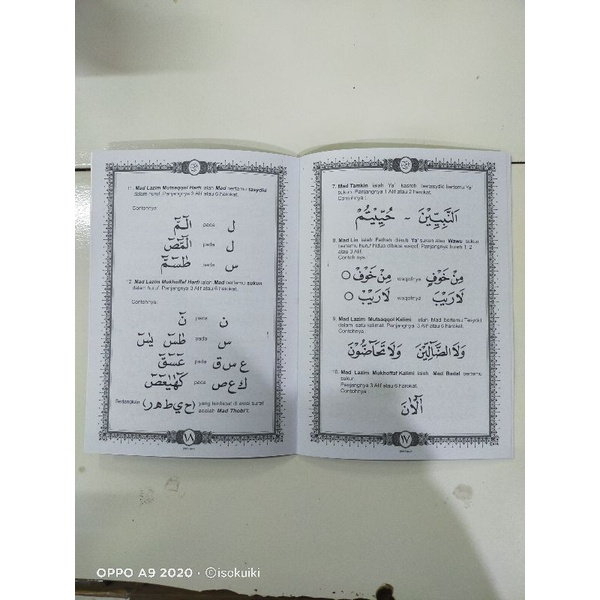 7. Mad Tamkin ialah Ya` kasroh bertasydid bertemu Ya`
sukun. Panjangnya 1 Alif atau 2 harokat.
Contohnya :
اَلنَّبِيِّيْنَ - حُيِّيْتُمْ
8. Mad Lin ialah Fathah diikuti Ya` sukun atau Wawu sukun
bertemu huruf hidup dibaca waqof. Panjangnya boleh 1, 2
atau 3 Alif.
Contohnya :
مِنْ خَوْفٍ waqafnya مِنْ خَوْفْ ○
لَا رَيْبَ waqafnya لَا رَيْبْ ○
9. Mad Lazim Mutsaqqol Kalimi ialah Mad bertemu Tasydid
dalam satu kalimat. Panjangnya 3 Alif atau 6 harokat.
Contohnya :
وَلَا الضَّآلِّيْنَ وَلَا تَحَآضُّوْنَ
10. Mad Lazim Mukhoffaf Kalimi ialah Mad Badal bertemu
sukun.
Panjangnya 3 Alif atau 6 harokat.
Contohnya :
آلْآنَ
١٧
11. Mad Lazim Mutsaqqol Harfi ialah Mad bertemu tasydid
dalam huruf. Panjangnya 3 Alif atau 6 harokat.
Contohnya :
ل pada الٓمّٓ
ل pada الٓمّٓصٓ
س pada طٰسٓمّٓ
12. Mad Lazim Mukhoffaf Harfi ialah Mad bertemu sukun
dalam huruf. Panjangnya 3 Alif atau 6 harokat.
Contohnya :
ن pada نٓ
س pada طٰسٓ يٰسٓ
ع س ق pada عٓسٓقٓ
ك ع ص pada كٓهٰيٰعٓصٓ
Sedangkan (ح ي ط ه ر) yang terdapat di awal surat
adalah Mad Thobi'i.
١٨
OPPO A9 2020 · ©isokuiki